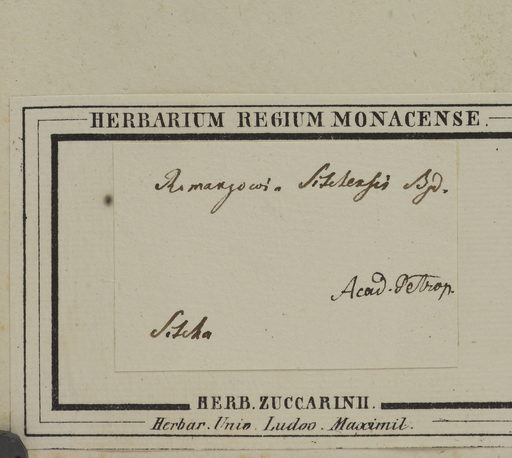 HERBARIUM REGIUM MONACENSE.
Romanzowia Sitchensis Bgd.
Acad. Petrop.
Sitcha
HERB. ZUCCARINII.
Herbar. Univ. Ludov. Maximil.